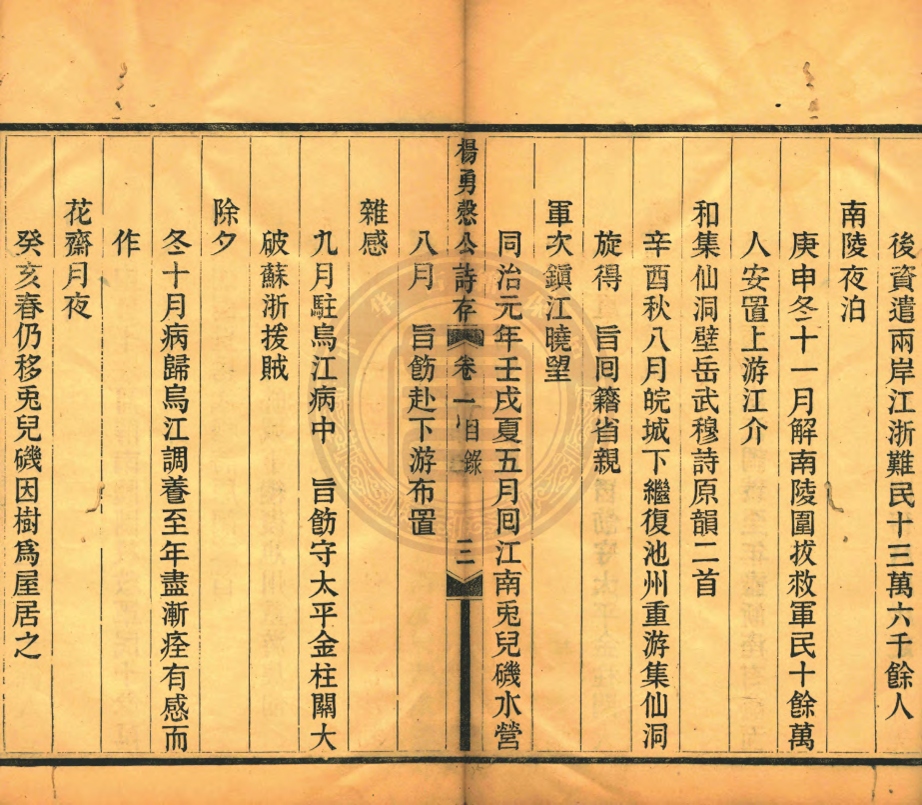 後資遣兩岸江浙難民十三萬六千餘人
南陵夜泊
庚申冬十一月解南陵圍拔救軍民十餘萬
人安置上游江介
和集仙洞壁岳武穆詩原韻二首
辛酉秋八月皖城下繼復池州重游集仙洞
旋得 旨囘籍省親
軍次鎮江曉望
同治元年壬戌夏五月囘江南兎兒磯水營
楊勇慤公詩存 卷一 目錄 三
八月 旨飭赴下游布置
雜感
九月駐烏江病中 旨飭守太平金柱關大
破蘇浙援賊
除夕
冬十月病歸烏江調養至年盡漸痊有感而
作
花齋月夜
癸亥春仍移兎兒磯因樹爲屋居之